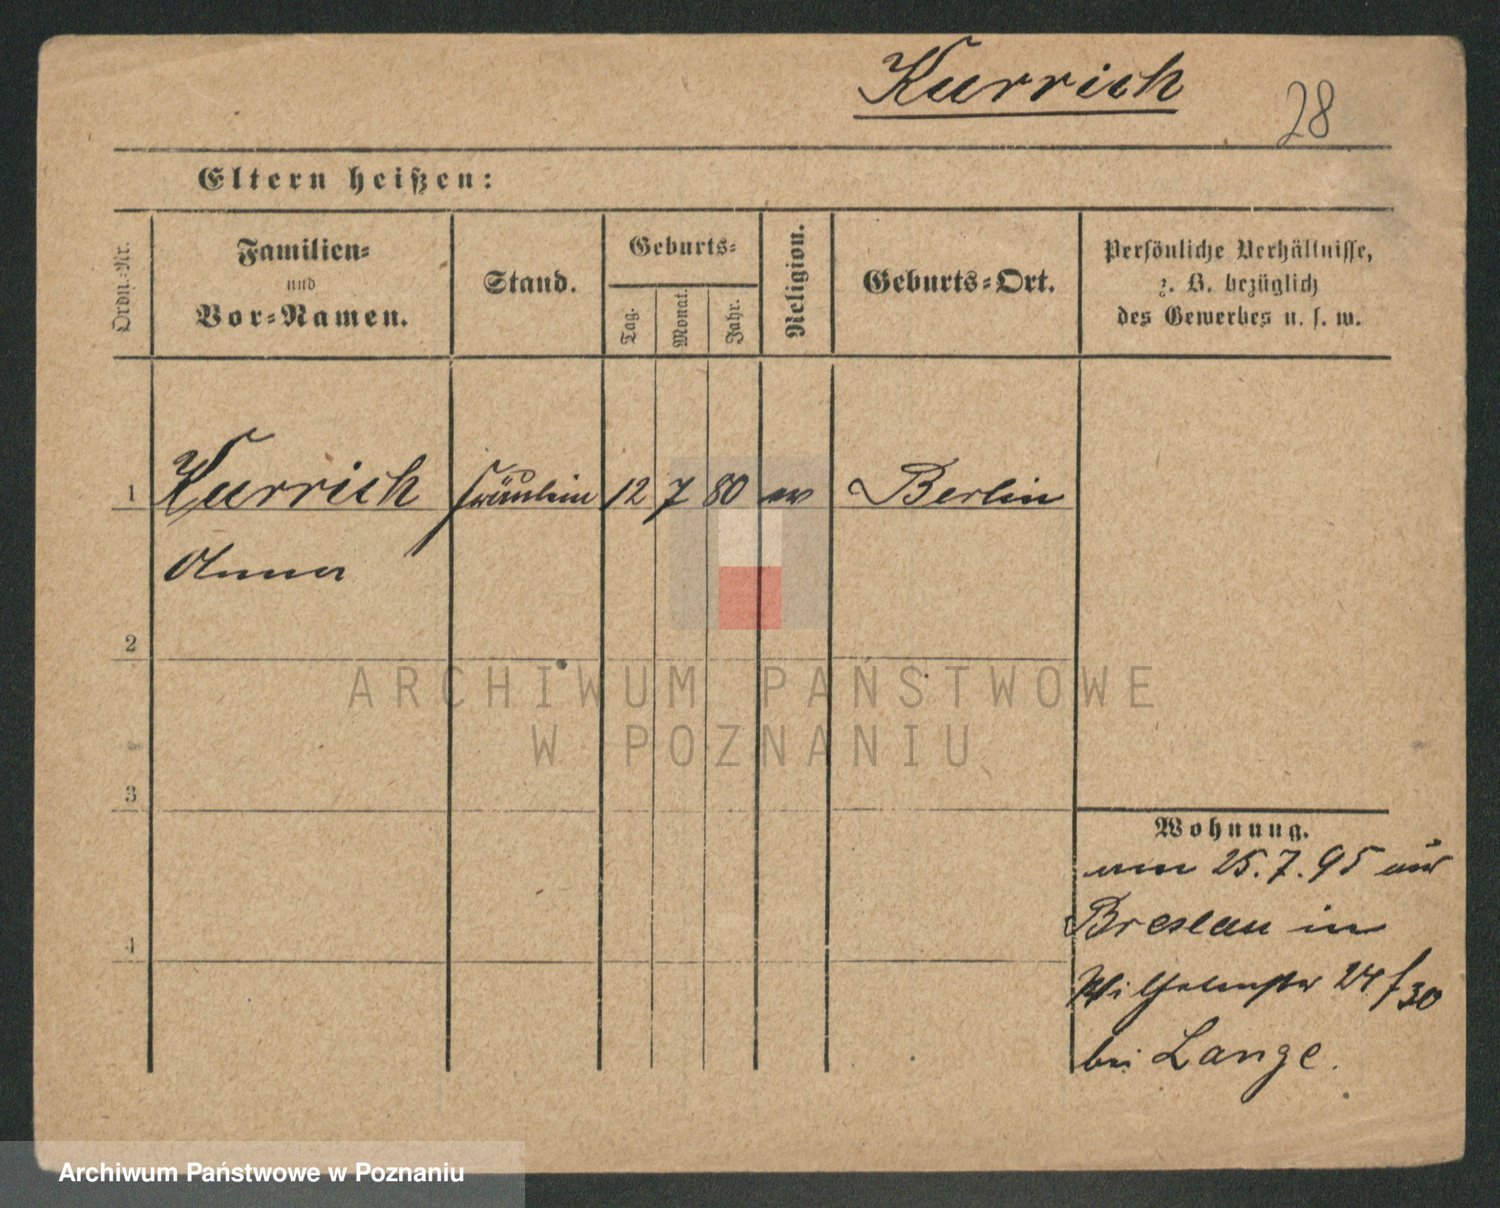 Kurrich
28
Eltern heißen:
Ordn.-Nr.
Familien-
und
Vor-Namen.
Stand.
Geburts-
Tag.
Monat.
Jahr.
Religion.
Geburts-Ort.
Persönliche Verhältnisse,
z. B. bezüglich
des Gewerbes u. s. w.
1 Kurrich Fräulein 12 7 80 ev Berlin
Anna
2
3
4
Wohnung.
am 25.7.95 aus
Breslau in
Wilhelmstr 24 f 30
bei Lange.
ARCHIWUM PAŃSTWOWE
W POZNANIU
Archiwum Państwowe w Poznaniu